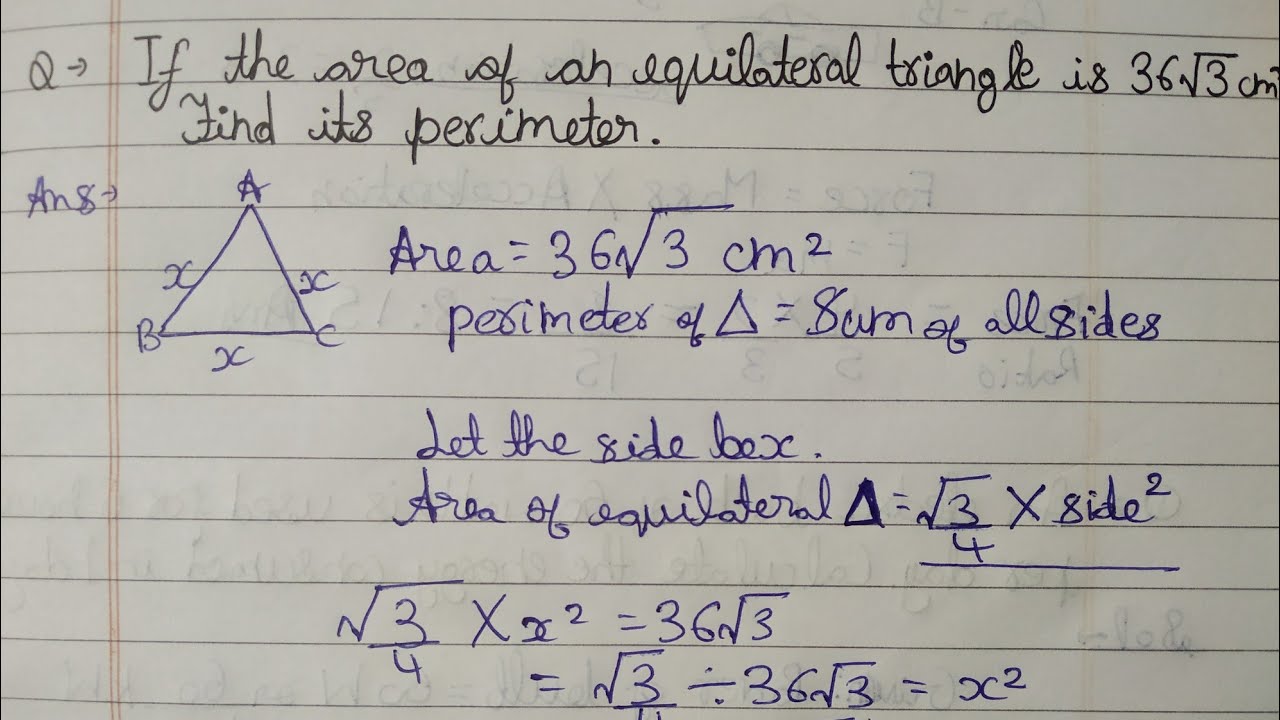 Q→ If the area of an equilateral triangle is 36√3 cm²
find its perimeter.
Ans→
A
x x
B C
x
Area = 36√3 cm²
perimeter of Δ = Sum of all sides
Let the side be x.
Area of equilateral Δ = √3/4 × side²
√3/4 × x² = 36√3
= √3/4 ÷ 36√3 = x²